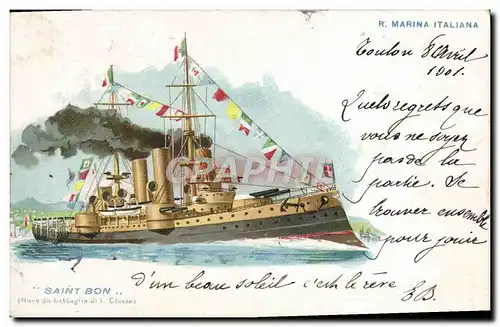 R. MARINA ITALIANA
Toulon 8 Avril
1901.
Quels regrets que
vous ne soyez
pas de la
partie. Se
trouver ensemble
pour jouir
d'un beau soleil c'est le rêve
EB.
CPARAMA
"SAINT BON"
(Nave da battaglia di I. Classe)